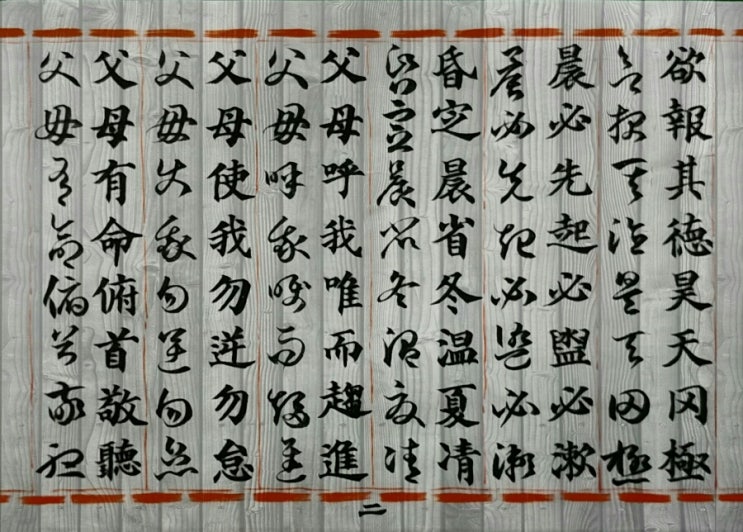 欲報其德昊天罔極
欲報其德昊天罔極
晨必先起必盥必漱
晨必先起必盥必漱
昏定晨省冬温夏凊
昏定晨省冬温夏凊
父母呼我唯而趨進
父母呼我唯而趨進
父母使我勿逆勿怠
父母使我勿逆勿怠
父母有命俯首敬聽
父母有命俯首敬聽
二